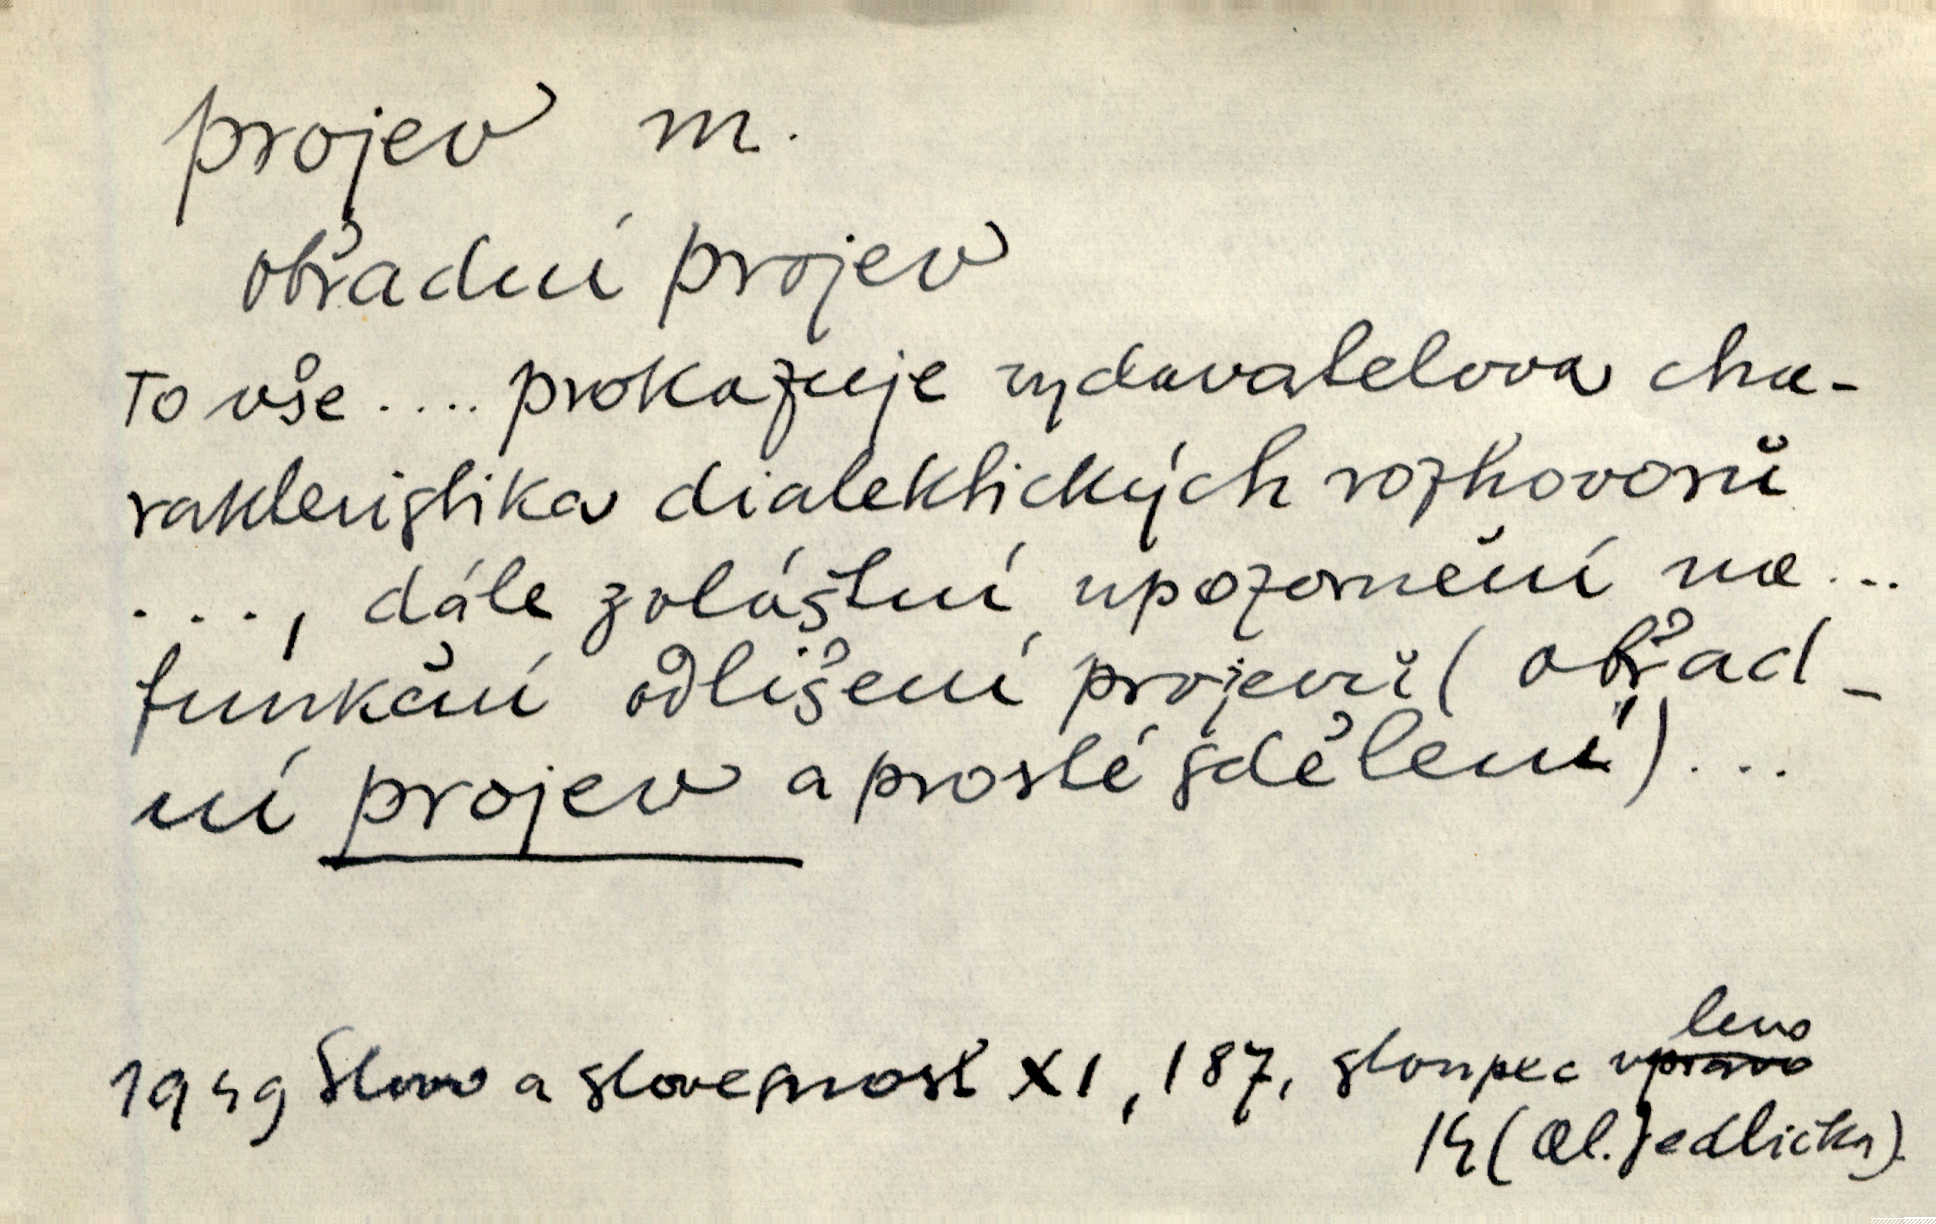 projev m.
obřadní projev
To vše .... prokazuje vydavatelova cha-
rakteristika dialektických rozhovorů
...., dále zvláštní upozornění na ...
funkční odlišení projevů ( obřad-
ní projev a prosté sdělení") ...
levo
1949 Slovo a slovesnost XI, 187, sloupec vpravo
14 (Al. Jedlička).